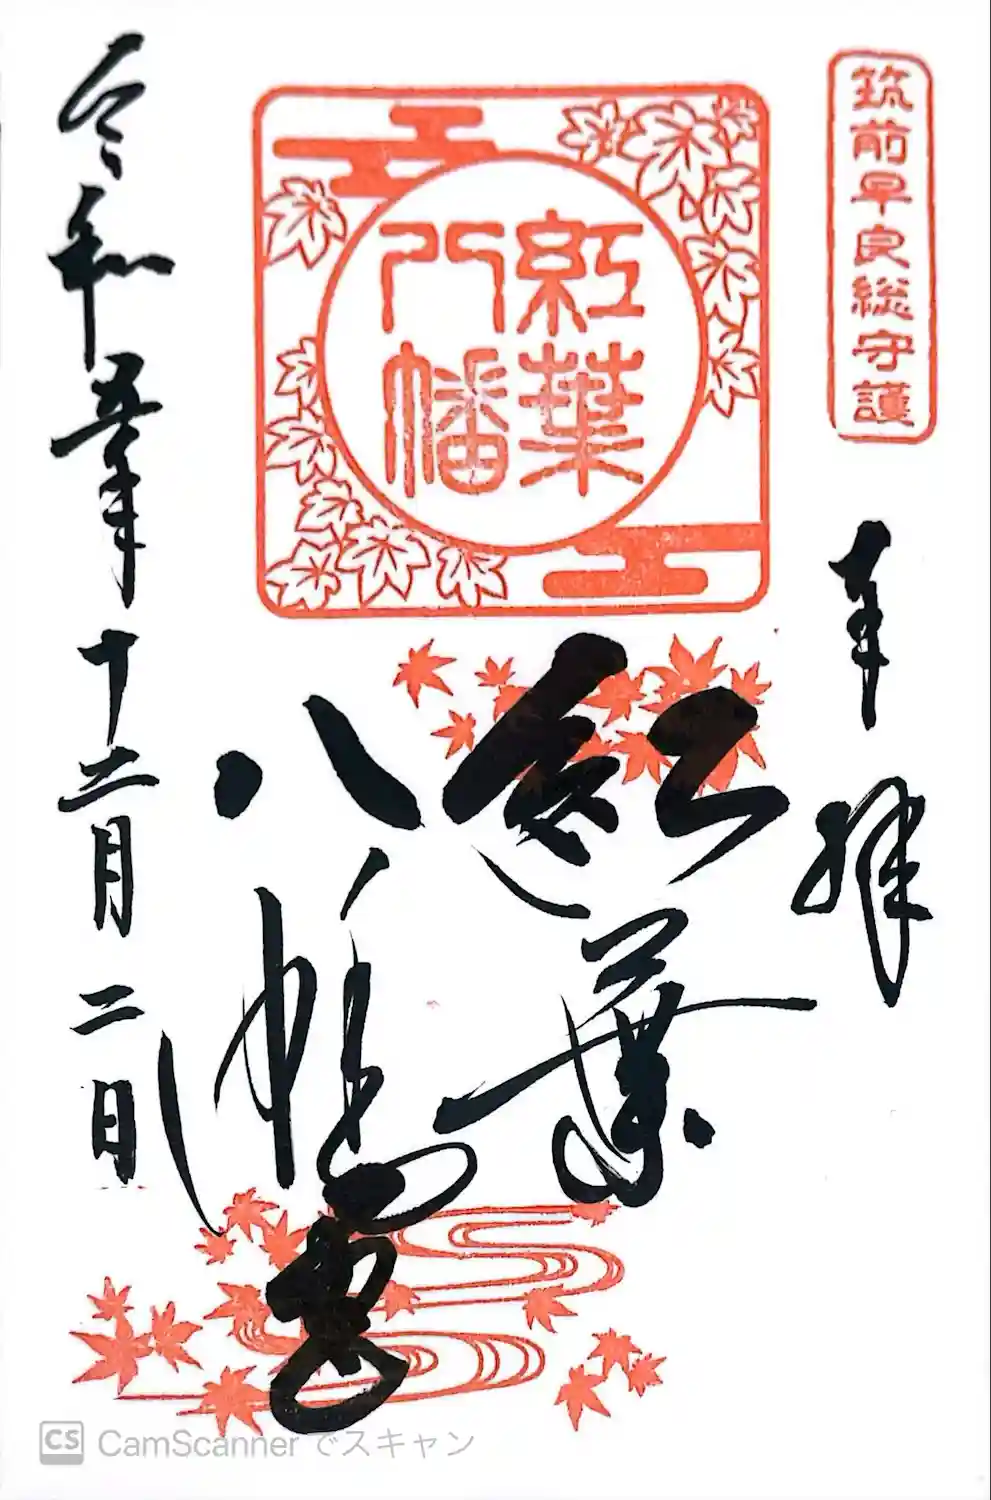 筑前早良総守護
奉拝
紅葉
八幡
紅葉
八幡宮
令和五年十二月二日
CS CamScanner でスキャン